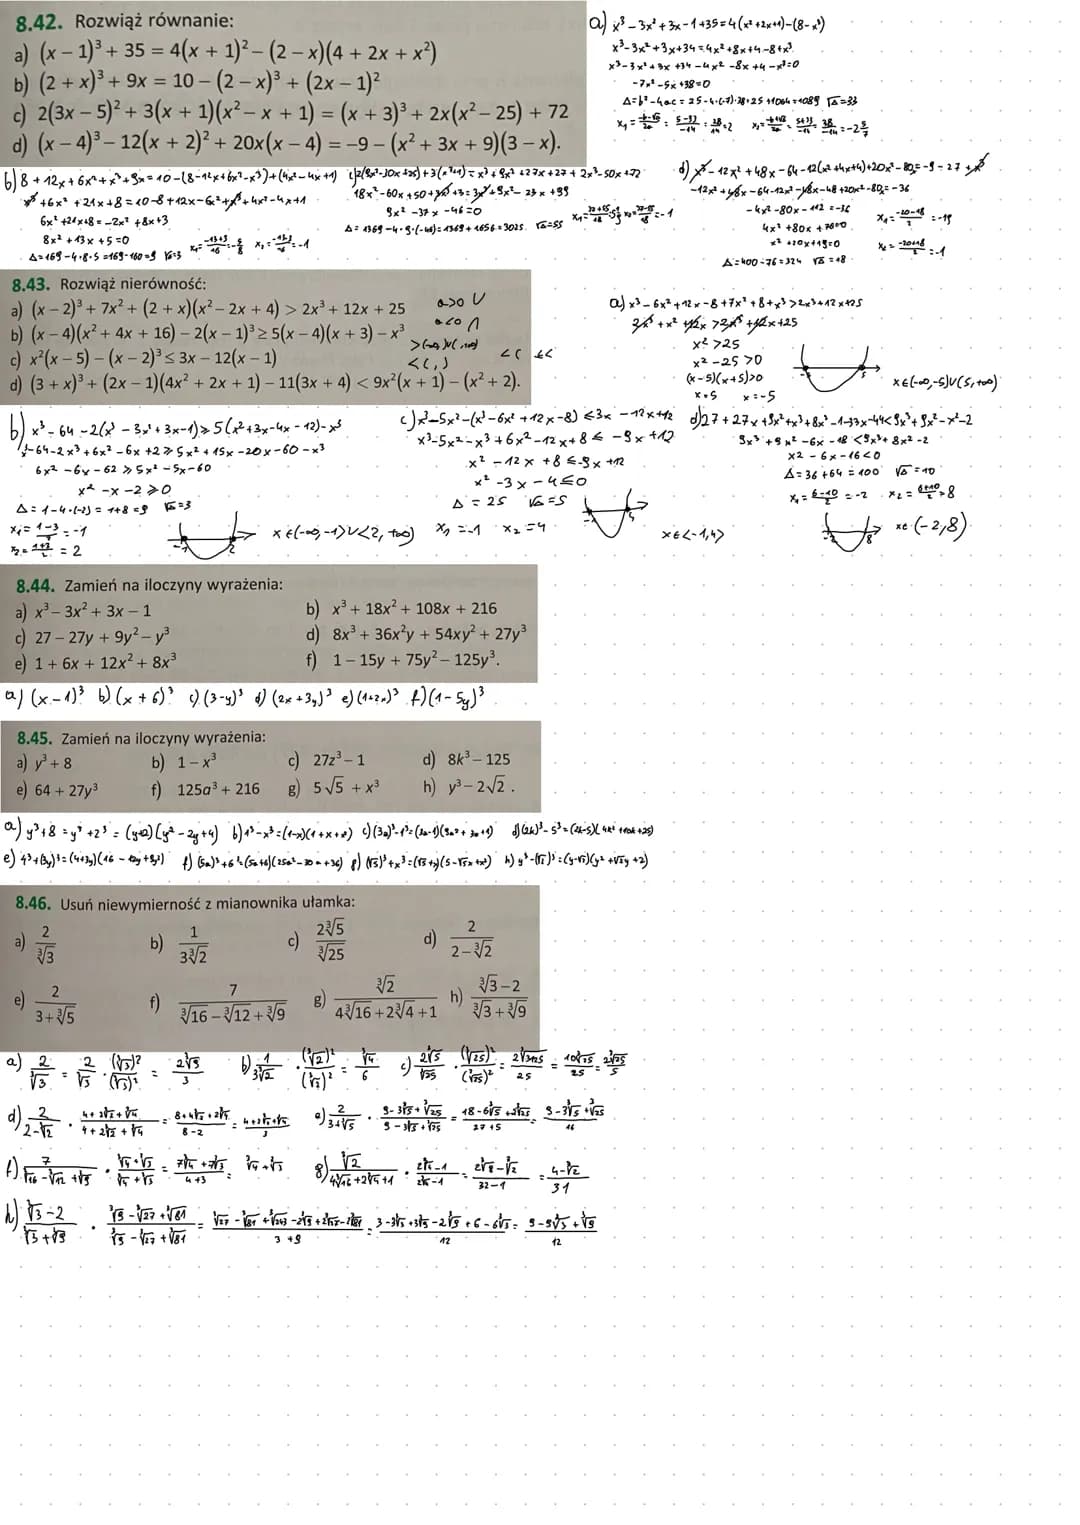 8.42. Rozwiąż równanie:
a) (x – 1)³ + 35 = 4(x + 1)² – (2 – x)(4 + 2x + x²)
b) (2 + x)³ + 9x = 10 – (2 – x)³ + (2x – 1)²
c) 2(3x – 5)² + 3(x + 1)(x² – x + 1) = (x + 3)³ + 2x(x² – 25) + 72
d) (x – 4)³ – 12(x + 2)² + 20x(x – 4) = –9 – (x² + 3x + 9)(3 – x).
a) x³-3x²+3x-1+35=4(x²+2x+1)-(8-x³)
x³-3x²+3x+34=4x²+8x+4-8+x³
x³-3x²+3x+34-4x²-8x+4-x³=0
-7x²-5x+38=0
Δ=b²-4ac=25-4·(-7)·38=25+1064=1089 √Δ=33
b) 8+12x+6x²+x³+9x=10-(8-12x+6x²-x³)+(4x²-4x+1)
x³+6x²+21x+8=10-8+12x-6x²+x³+4x²-4x+1
6x²+21x+8=-2x²+8x+3
8x²+13x+5=0
Δ=169-4·8·5=169-160=9 √Δ=3
c) 2(9x²-30x+25)+3(x³+1)=x³+9x²+27x+27+2x³-50x+72
18x²-60x+50+3x³+3=3x³+9x²-23x+99
9x²-37x-46=0
Δ=1369-4·9·(-46)=1369+1656=3025 √Δ=55
d) x³-12x²+48x-64-12(x²+4x+4)+20x²-80x=-9-27+x³
-12x²+48x-64-12x²-48x-48+20x²-80x=-36
-4x²-80x-112=-36
4x²+80x+76=0
x²+20x+19=0
Δ=400-76=324 √Δ=18
8.43. Rozwiąż nierówność:
a) (x – 2)³ + 7x² + (2 + x)(x² – 2x + 4) > 2x³ + 12x + 25
b) (x – 4)(x² + 4x + 16) – 2(x – 1)³ ≥ 5(x – 4)(x + 3) – x³
c) x²(x – 5) – (x – 2)³ ≤ 3x – 12(x – 1)
d) (3 + x)³ + (2x – 1)(4x² + 2x + 1) – 11(3x + 4) < 9x²(x + 1) – (x² + 2).
a>0 ∪
a<0 ∩
a) x³-6x²+12x-8+7x²+8+x³>2x³+12x+25
2x³+x²+12x>2x³+12x+25
x²>25
x²-25>0
(x-5)(x+5)>0
x=5 x=-5
x∈(-∞,-5)∪(5,+∞)
b) x³-64-2(x³-3x²+3x-1)≥5(x²+3x-4x-12)-x³
x³-64-2x³+6x²-6x+2≥5x²+15x-20x-60-x³
6x²-6x-62≥5x²-5x-60
x²-x-2≥0
Δ=1-4·(-2)=1+8=9 √Δ=3
x₁=(1-3)/2=-1
x₂=(1+3)/2=2
x∈(-∞,-1)∪<2,+∞)
c) x³-5x²-(x³-6x²+12x-8)≤3x-12x+12
x³-5x²-x³+6x²-12x+8≤-9x+12
x²-12x+8≤-9x+12
x²-3x-4≤0
Δ=25 √Δ=5
x₁=-1 x₂=4
x∈<-1,4>
d) 27+27x+9x²+x³+8x³-1-33x-44<9x³+9x²-x²-2
9x³+9x²-6x-18<9x³+8x²-2
x²-6x-16<0
Δ=36+64=100 √Δ=10
x₁=(6-10)/2=-2 x₂=(6+10)/2=8
x∈(-2,8)
8.44. Zamień na iloczyny wyrażenia:
a) x³ – 3x² + 3x – 1 b) x³ + 18x² + 108x + 216
c) 27 – 27y + 9y² – y³ d) 8x³ + 36x²y + 54xy² + 27y³
e) 1 + 6x + 12x² + 8x³ f) 1 – 15y + 75y² – 125y³.
a) (x-1)³ b) (x+6)³ c) (3-y)³ d) (2x+3y)³ e) (1+2x)³ f) (1-5y)³
8.45. Zamień na iloczyny wyrażenia:
a) y³ + 8 b) 1 – x³ c) 27z³ – 1 d) 8k³ – 125
e) 64 + 27y³ f) 125a³ + 216 g) 5√5 + x³ h) y³ – 2√2.
a) y³+8=y³+2³=(y+2)(y²-2y+4) b) 1³-x³=(1-x)(1+x+x²) c) (3a)³-1³=(3a-1)(9a²+3a+1) d) (2k)³-5³=(2k-5)(4k²+10k+25)
e) 4³+(3y)³=(4+3y)(16-12y+9y²) f) (5a)³+6³=(5a+6)(25a²-30a+36) g) (√5)³+x³=(√5+x)(5-√5x+x²) h) y³-(√2)³=(y-√2)(y²+√2y+2)
8.46. Usuń niewymierność z mianownika ułamka:
a) 2/∛3 b) 1/(3∛2) c) 2∛5/∛25 d) 2/(2–∛2)
e) 2/(3+∛5) f) 7/(∛16–∛12+∛9) g) ∛2/(4∛16+2∛4+1) h) (∛3–2)/(∛3+∛9)
a) 2/∛3=2/∛3·(∛3)²/(∛3)²=2∛9/3 b) 1/(3∛2)·(∛2)²/(∛2)²=∛4/6 c) 2∛5/∛25·(∛25)²/(∛25)²=2∛3125/25=10∛25/25=2∛25/5
d) 2/(2-∛2)·(4+2∛2+∛4)/(4+2∛2+∛4)=(8+4∛2+2∛4)/(8-2)=(4+2∛2+∛4)/3 e) 2/(3+∛5)·(9-3∛5+∛25)/(9-3∛5+∛25)=(18-6∛5+2∛25)/(27+5)=(9-3∛5+∛25)/16
f) 7/(∛16-∛12+∛9)·(∛4+∛3)/(∛4+∛3)=(7∛4+7∛3)/(4+3)=∛4+∛3 g) ∛2/(4∛16+2∛4+1)·(2∛4-1)/(2∛4-1)=(2∛8-∛2)/(32-1)=(4-∛2)/31
h) (∛3-2)/(∛3+∛9)·(∛9-∛27+∛81)/(∛9-∛27+∛81)=(∛27-∛81+∛243-2∛9+2∛27-2∛81)/(3+9)=(3-3∛3+3∛9-2∛9+6-6∛3)/12=(9-9∛3+∛9)/12